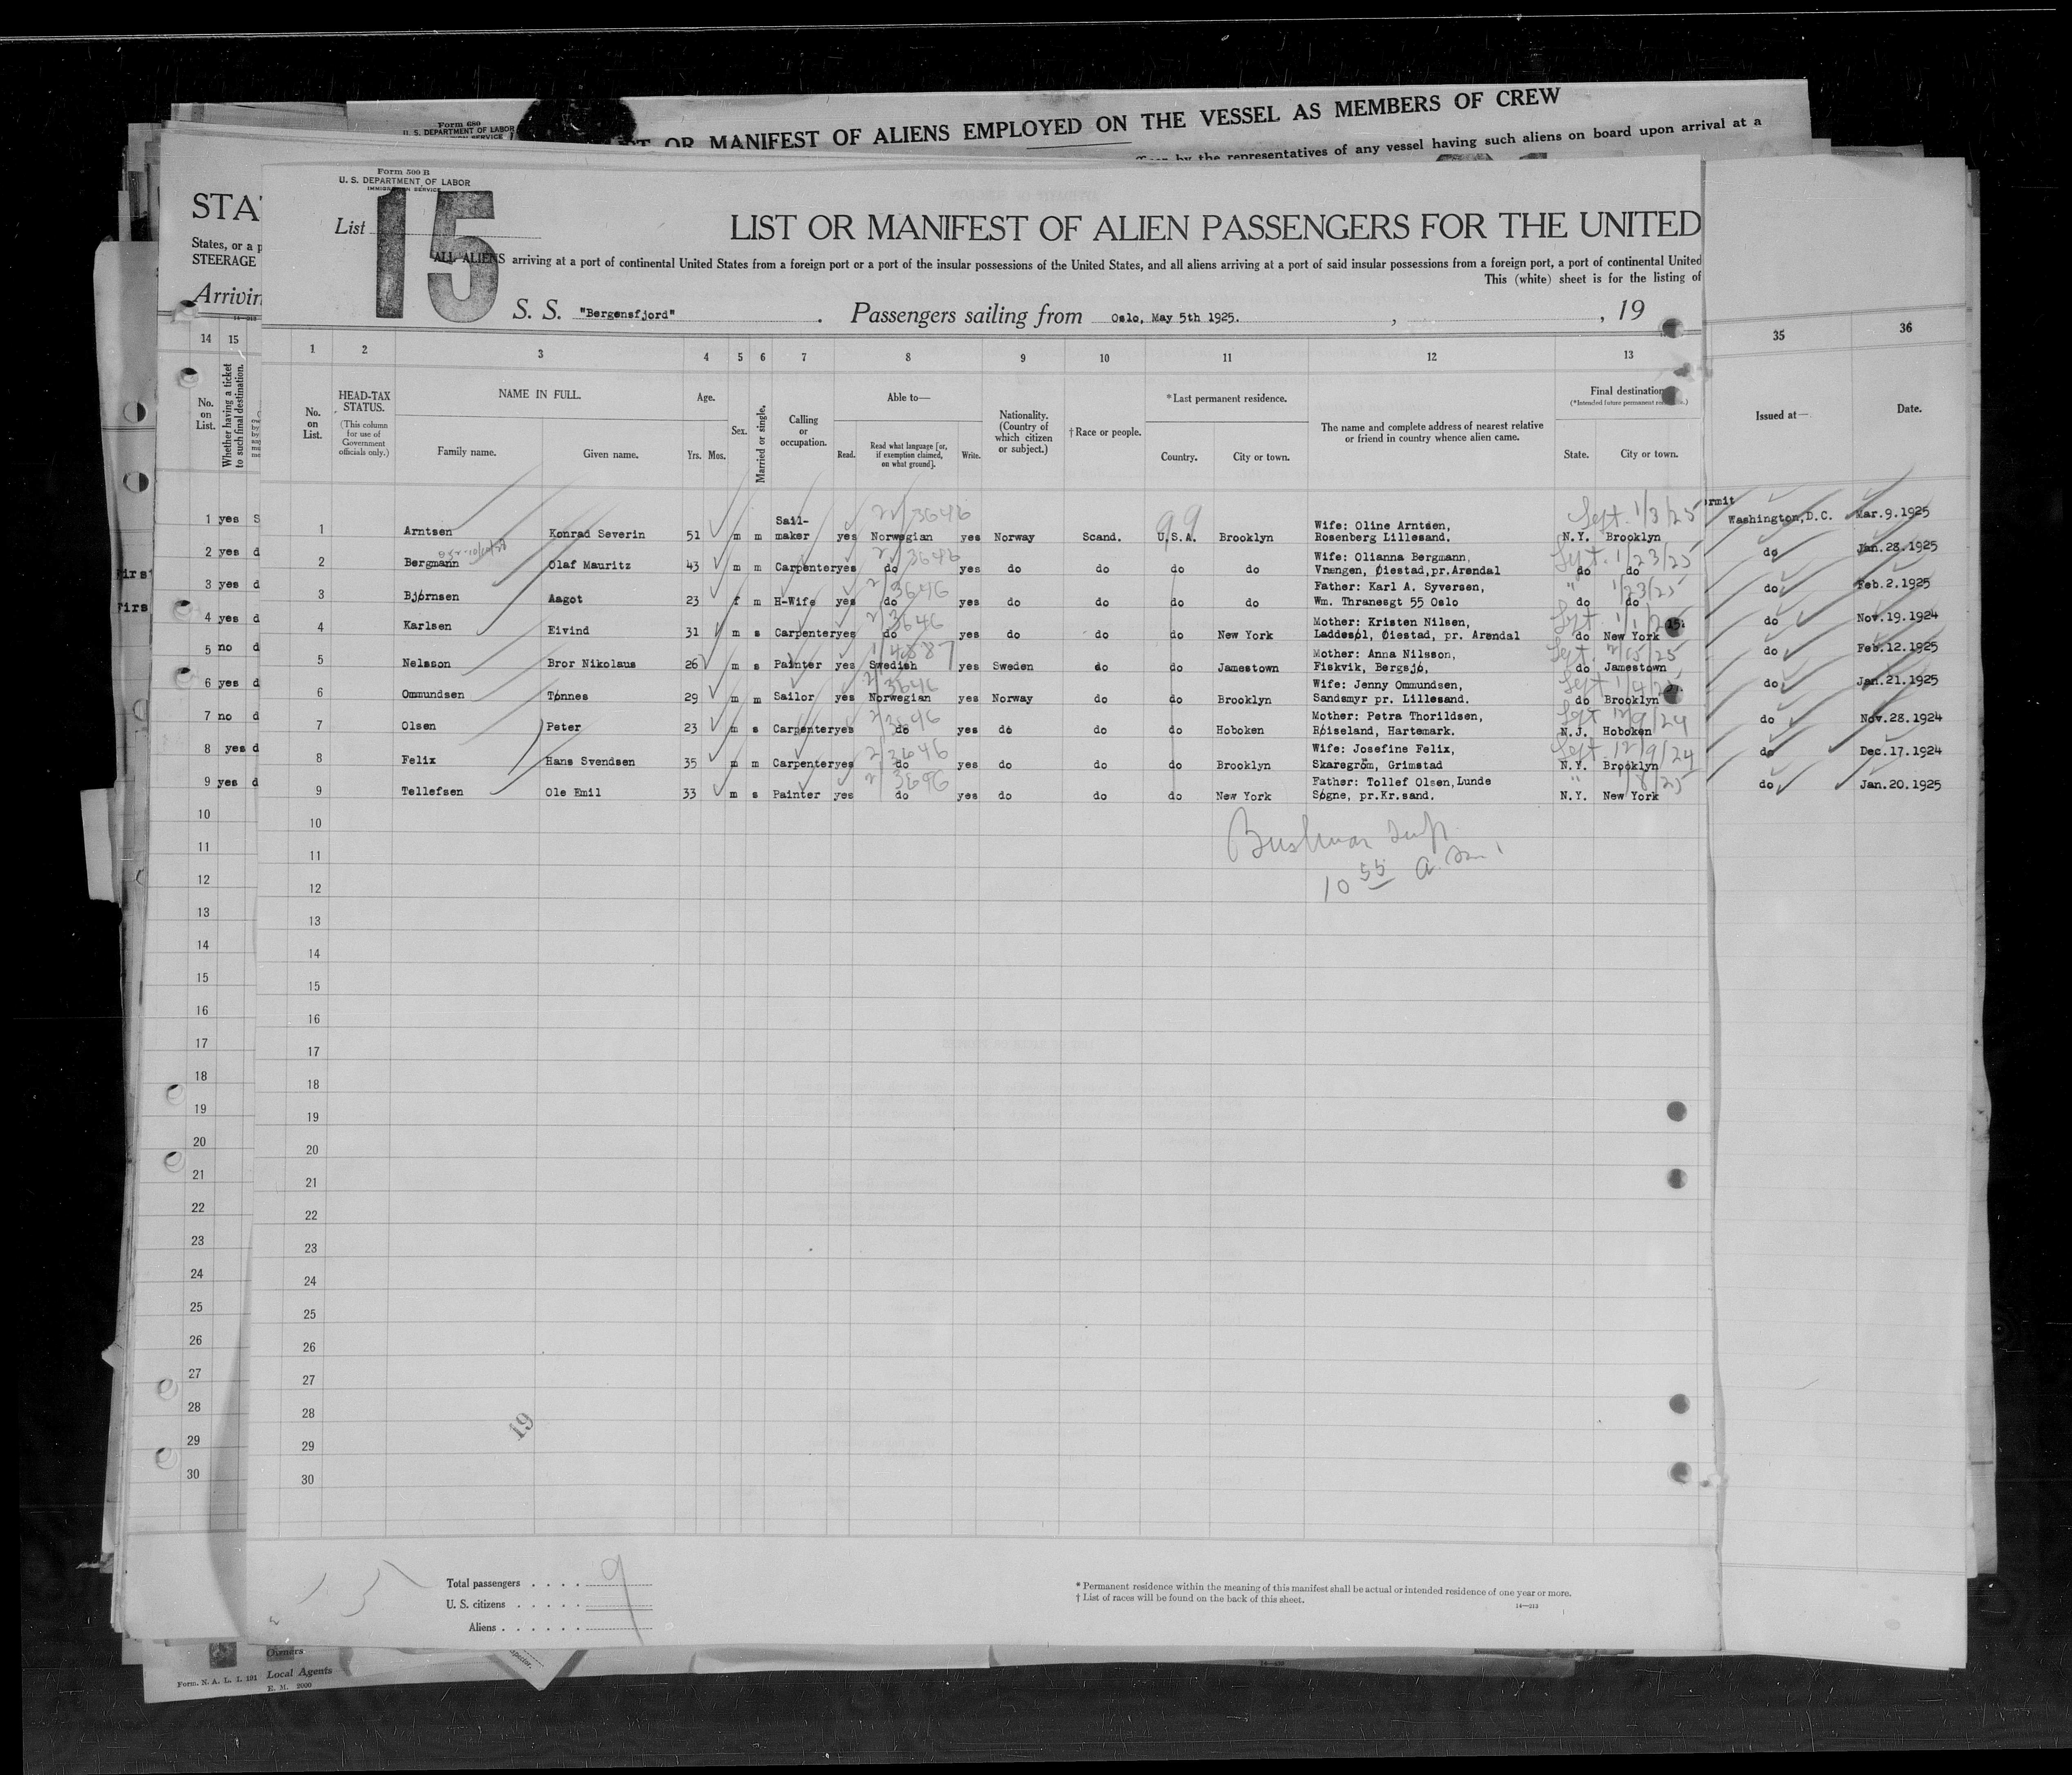 Form 680
U. S. DEPARTMENT OF LABOR
OR MANIFEST OF ALIENS EMPLOYED ON THE VESSEL AS MEMBERS OF CREW
by the representatives of any vessel having such aliens on board upon arrival at a
Form 500 B
U. S. DEPARTMENT OF LABOR
IMMIGRATION SERVICE
STA
States, or a p
STEERAGE
Arrivin
List 15
LIST OR MANIFEST OF ALIEN PASSENGERS FOR THE UNITED
ALL ALIENS arriving at a port of continental United States from a foreign port or a port of the insular possessions of the United States, and all aliens arriving at a port of said insular possessions from a foreign port, a port of continental United
This (white) sheet is for the listing of
S. S. "Bergensfjord" . Passengers sailing from Oslo, May 5th 1925. , , 19
14 15 1 2 3 4 5 6 7 8 9 10 11 12 13 35 36
No. on List.
Whether having a ticket to such final destination.
No. on List.
HEAD-TAX STATUS.
(This column for use of Government officials only.)
NAME IN FULL.
Family name. Given name.
Age.
Yrs. Mos.
Sex.
Married or single.
Calling or occupation.
Able to—
Read. Read what language [or, if exemption claimed, on what ground]. Write.
Nationality. (Country of which citizen or subject.)
†Race or people.
*Last permanent residence.
Country. City or town.
The name and complete address of nearest relative or friend in country whence alien came.
Final destination
(*Intended future permanent
State. City or town.
Issued at—
Date.
ermit
1 yes S 1 Arntsen Konrad Severin 51 m m Sail-maker yes Norwegian yes Norway Scand. U.S.A. Brooklyn Wife: Oline Arntsen, Rosenberg Lillesand. N.Y. Brooklyn Washington, D.C. Mar.9.1925
2/3646 99 Sept. 1/3/25
2 yes d 2 Bergmann Olaf Mauritz 43 m m Carpenter yes do yes do do do do Wife: Olianna Bergmann, Vrængen, Øiestad, pr. Arendal do do do Jan.28.1925
2/3646 Sept. 1/23/25
3 yes d 3 Bjørnsen Aagot 23 f m H-Wife yes do yes do do do do Father: Karl A. Syversen, Wm. Thranesgt 55 Oslo do do do Feb.2.1925
2/3646 " 1/23/25
4 yes d 4 Karlsen Eivind 31 m s Carpenter yes do yes do do do New York Mother: Kristen Nilsen, Laddespl, Øiestad, pr. Arendal do New York do Nov.19.1924
2/3646
5 no d 5 Nelsson Bror Nikolaus 26 m s Painter yes Swedish yes Sweden do do Jamestown Mother: Anna Nilsson, Fiskvik, Bergsjö, do Jamestown do Feb.12.1925
1/4887
6 yes d 6 Ommundsen Tønnes 29 m m Sailor yes Norwegian yes Norway do do Brooklyn Wife: Jenny Ommundsen, Sandsmyr pr. Lillesand. do Brooklyn do Jan.21.1925
2/3646
7 no d 7 Olsen Peter 23 m s Carpenter yes do yes do do do Hoboken Mother: Petra Thorildsen, Røiseland, Hartemark. N.J. Hoboken do Nov.28.1924
2/3646 Sept 12/9/24
8 yes d 8 Felix Hans Svendsen 35 m m Carpenter yes do yes do do do Brooklyn Wife: Josefine Felix, Skaregrøm, Grimstad N.Y. Brooklyn do Dec.17.1924
2/3646 Sept. 12/9/24
9 yes d 9 Tellefsen Ole Emil 33 m s Painter yes do yes do do do New York Father: Tollef Olsen, Lunde Søgne, pr.Kr.sand. N.Y. New York do Jan.20.1925
2/3646
10 10
11 11
10 55 a.m.
12 12
13 13
14 14
15 15
16 16
17 17
18 18
19 19
20 20
21 21
22 22
23 23
24 24
25 25
26 26
27 27
28 28
19
29 29
30 30
Total passengers . . . . 9
U. S. citizens . . . . .
Aliens . . . . . .
* Permanent residence within the meaning of this manifest shall be actual or intended residence of one year or more.
† List of races will be found on the back of this sheet.
14—213
Owners
Form. N. A. L. I. 191 Local Agents
E. M. 2000